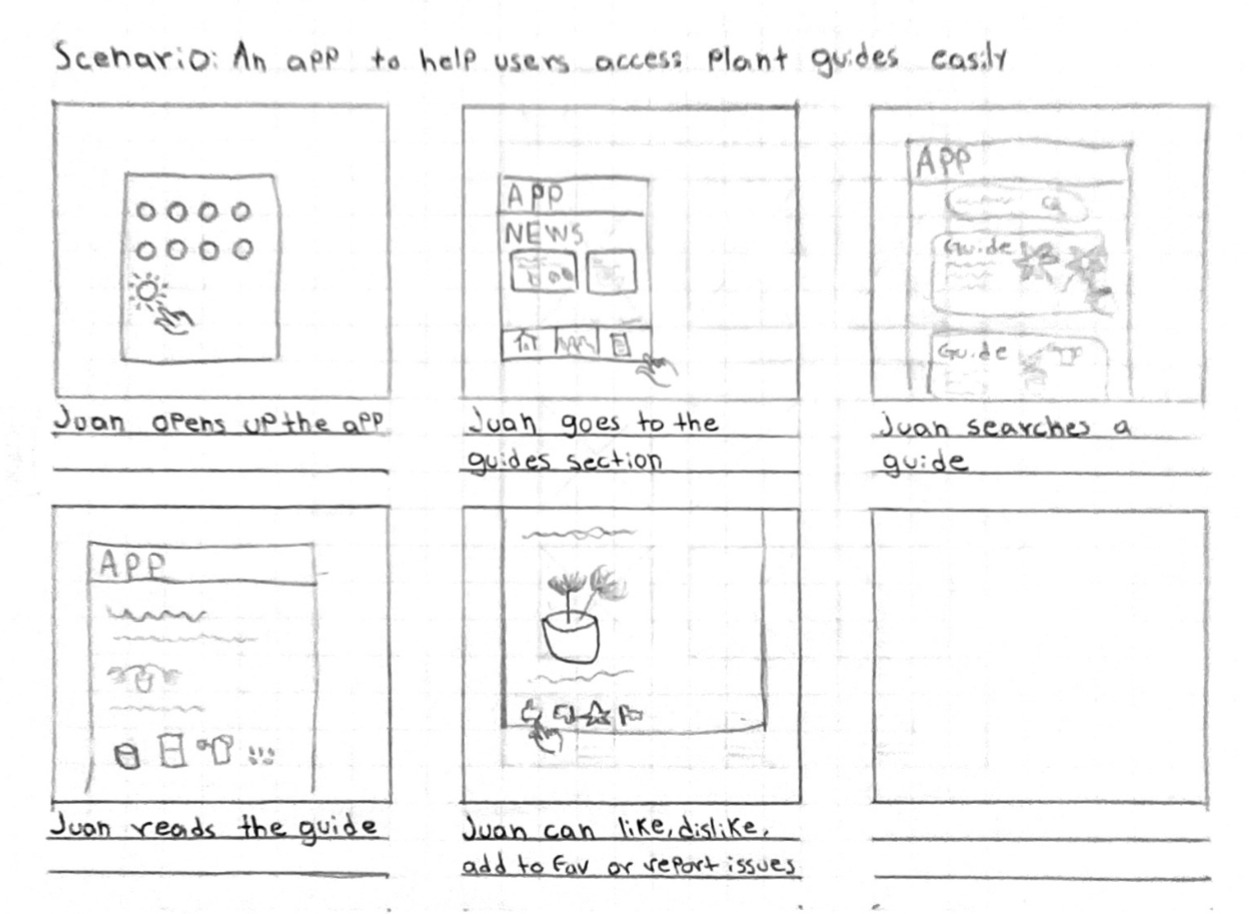 Scenario: An app to help users access plant guides easily
APP
NEWS
APP
Guide
Guide
Juan opens up the app
Juan goes to the
guides section
Juan searches a
guide
APP
Juan reads the guide
Juan can like, dislike,
add to fav or report issues